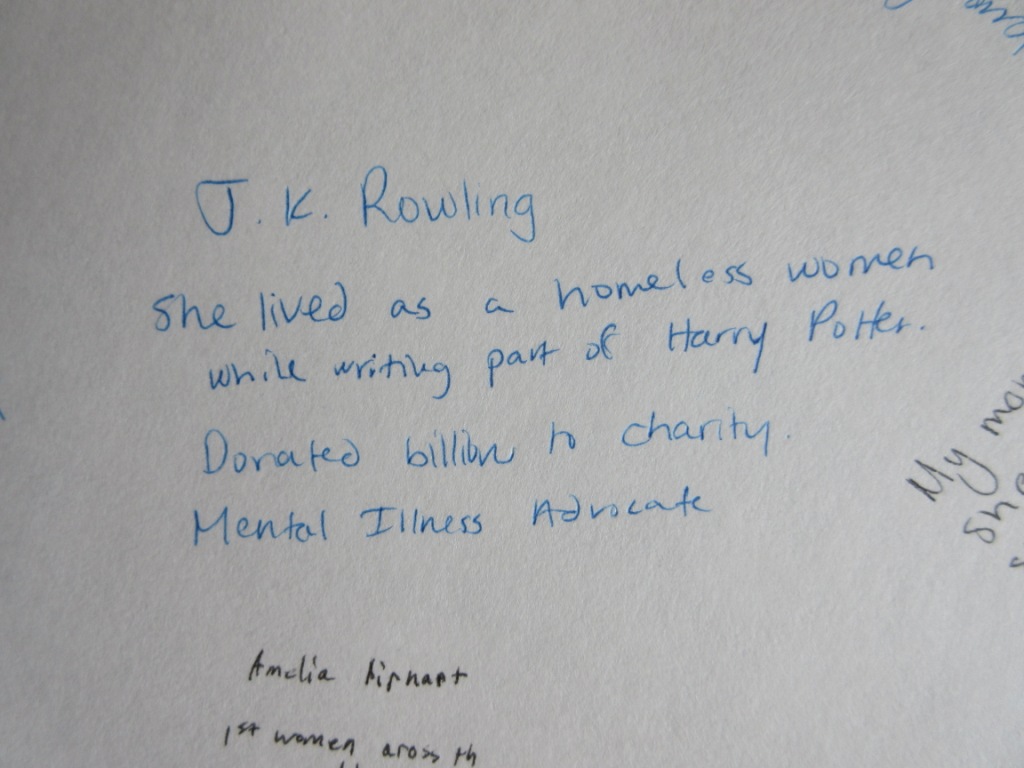 J.K. Rowling
She lived as a homeless women
while writing part of Harry Potter.
Donated billion to charity.
Mental Illness Advocate
My mom
she
Amelia Airhart
1st women aross th